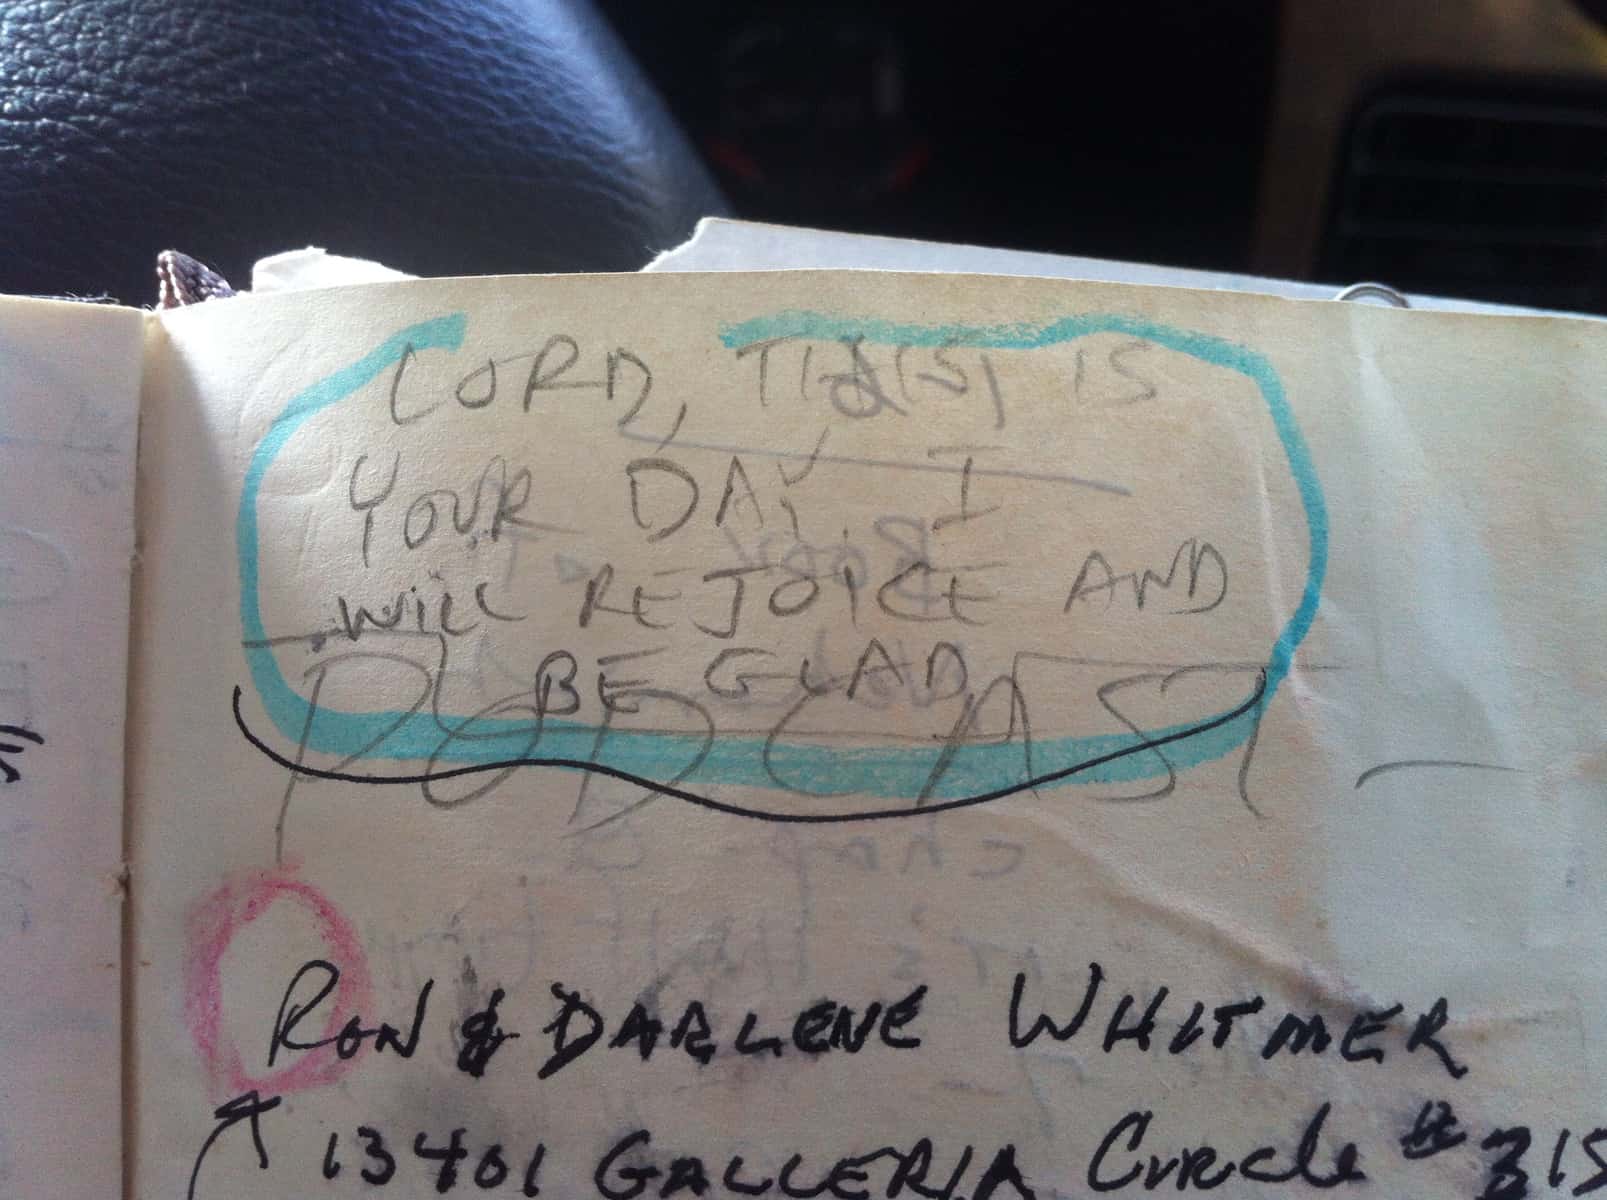 LORD, THIS IS
YOUR DAY. I
WILL REJOICE AND
BE GLAD
PODCAST
RON & DARLENE WHITMER
13401 GALLERIA CIRCLE # 315